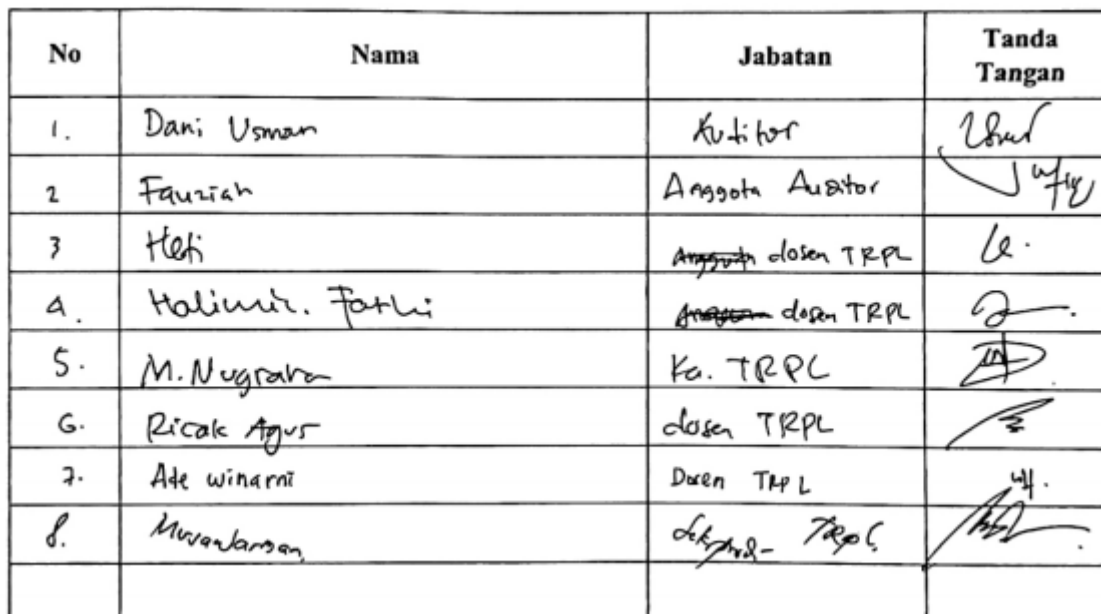 No Nama Jabatan Tanda Tangan
1. Dani Usman Auditor
2 Fauziah Anggota Auditor
3 Heti dosen TRPL
4. Halimil. Fathi dosen TRPL
5. M. Nugraha Ka. TRPL
6. Ricak Agus dosen TRPL
7. Ade winarni Dosen TRPL
8. TRPL